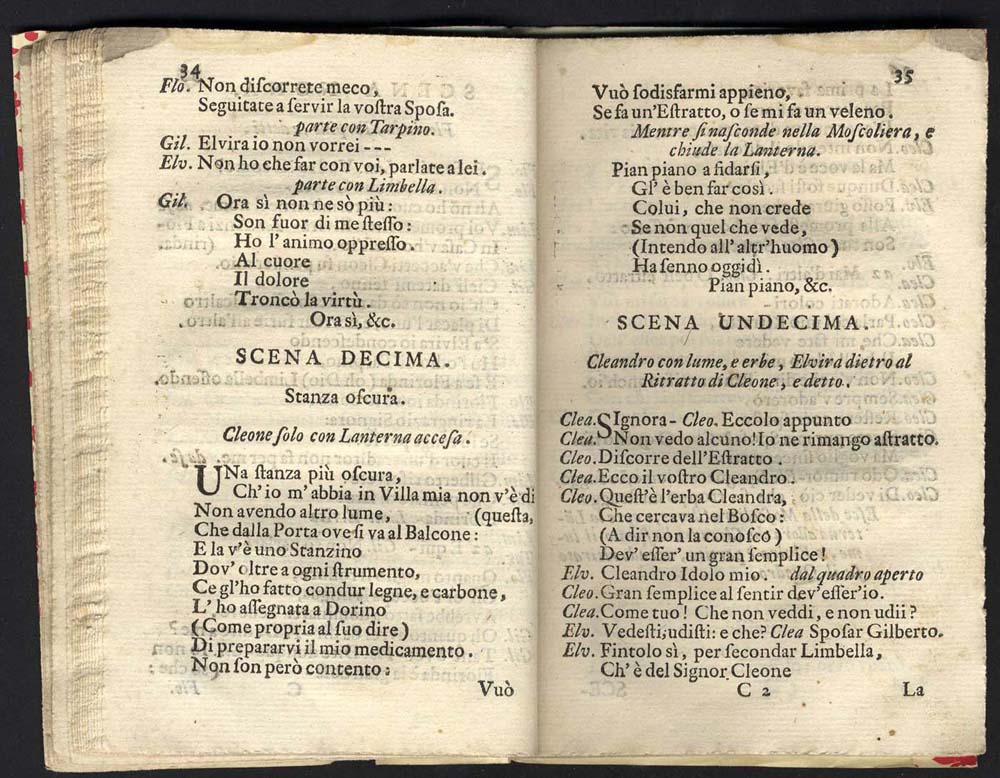 34
Flo. Non diſcorrete meco,
Seguitate a ſervir la voſtra Spoſa.
parte con Tarpino.
Gil. Elvira io non vorrei ---
Elv. Non ho che far con voi, parlate a lei.
parte con Limbella.
Gil. Ora sì non ne sò più:
Son fuor di me ſteſſo:
Ho l'animo oppreſſo.
Al cuore
Il dolore
Troncò la virtù.
Ora sì, &c.
SCENA DECIMA.
Stanza oſcura.
Cleone ſolo con Lanterna acceſa.
UNa ſtanza più oſcura,
Ch'io m'abbia in Villa mia non v'è di
Non avendo altro lume, (queſta,
Che dalla Porta ove ſi va al Balcone:
E la v'è uno Stanzino
Dov'oltre a ogni ſtrumento,
Ce gl'ho fatto condur legne, e carbone,
L'ho aſſegnata a Dorino
(Come propria al ſuo dire)
Di prepararvi il mio medicamento.
Non ſon però contento:
Vuò
35
Vuò ſodisfarmi appieno,
Se fa un'Eſtratto, o ſe mi fa un veleno.
Mentre ſi naſconde nella Moſcoliera, e
chiude la Lanterna.
Pian piano a fidarſi,
Gl'è ben far così.
Colui, che non crede
Se non quel che vede,
(Intendo all'altr'huomo)
Ha ſenno oggidì.
Pian piano, &c.
SCENA UNDECIMA.
Cleandro con lume, e erbe, Elvira dietro al
Ritratto di Cleone, e detto.
Clea. SIgnora - Cleo. Eccolo appunto
Clea. Non vedo alcuno! Io ne rimango aſtratto.
Cleo. Diſcorre dell'Eſtratto.
Clea. Ecco il voſtro Cleandro.
Cleo. Queſt'è l'erba Cleandra,
Che cercava nel Boſco:
(A dir non la conoſco)
Dev'eſſer'un gran ſemplice!
Elv. Cleandro Idolo mio. dal quadro aperto
Cleo. Gran ſemplice al ſentir dev'eſſer'io.
Clea. Come tuo! Che non veddi, e non udii?
Elv. Vedeſti, udiſti: e che? Clea Spoſar Gilberto.
Elv. Fintolo sì, per ſecondar Limbella,
Ch'è del Signor Cleone
C 2 La